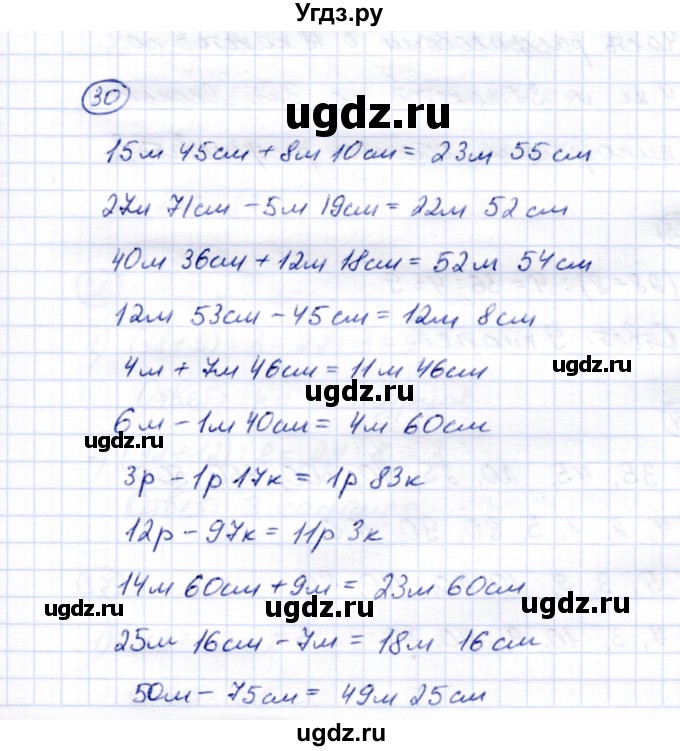 Угдз.ру
30
ugdz.ru
15м 45см + 8м 10см = 23м 55см
ugdz.ru
27м 71см - 5м 19см = 22м 52см
40м 36см + 12м 18см = 52м 54см
12м 53см - 45см = 12м 8см
ugdz.ru
4м + 7м 46см = 11м 46см
ugdz.ru
6м - 1м 40см = 4м 60см
ugdz.ru
3р - 1р 17к = 1р 83к
12р - 97к = 11р 3к
14м 60см + 9м = 23м 60см
ugdz.ru ugdz.ru ugdz.ru
25м 16см - 7м = 18м 16см
50м - 75см = 49м 25см
ugdz.ru